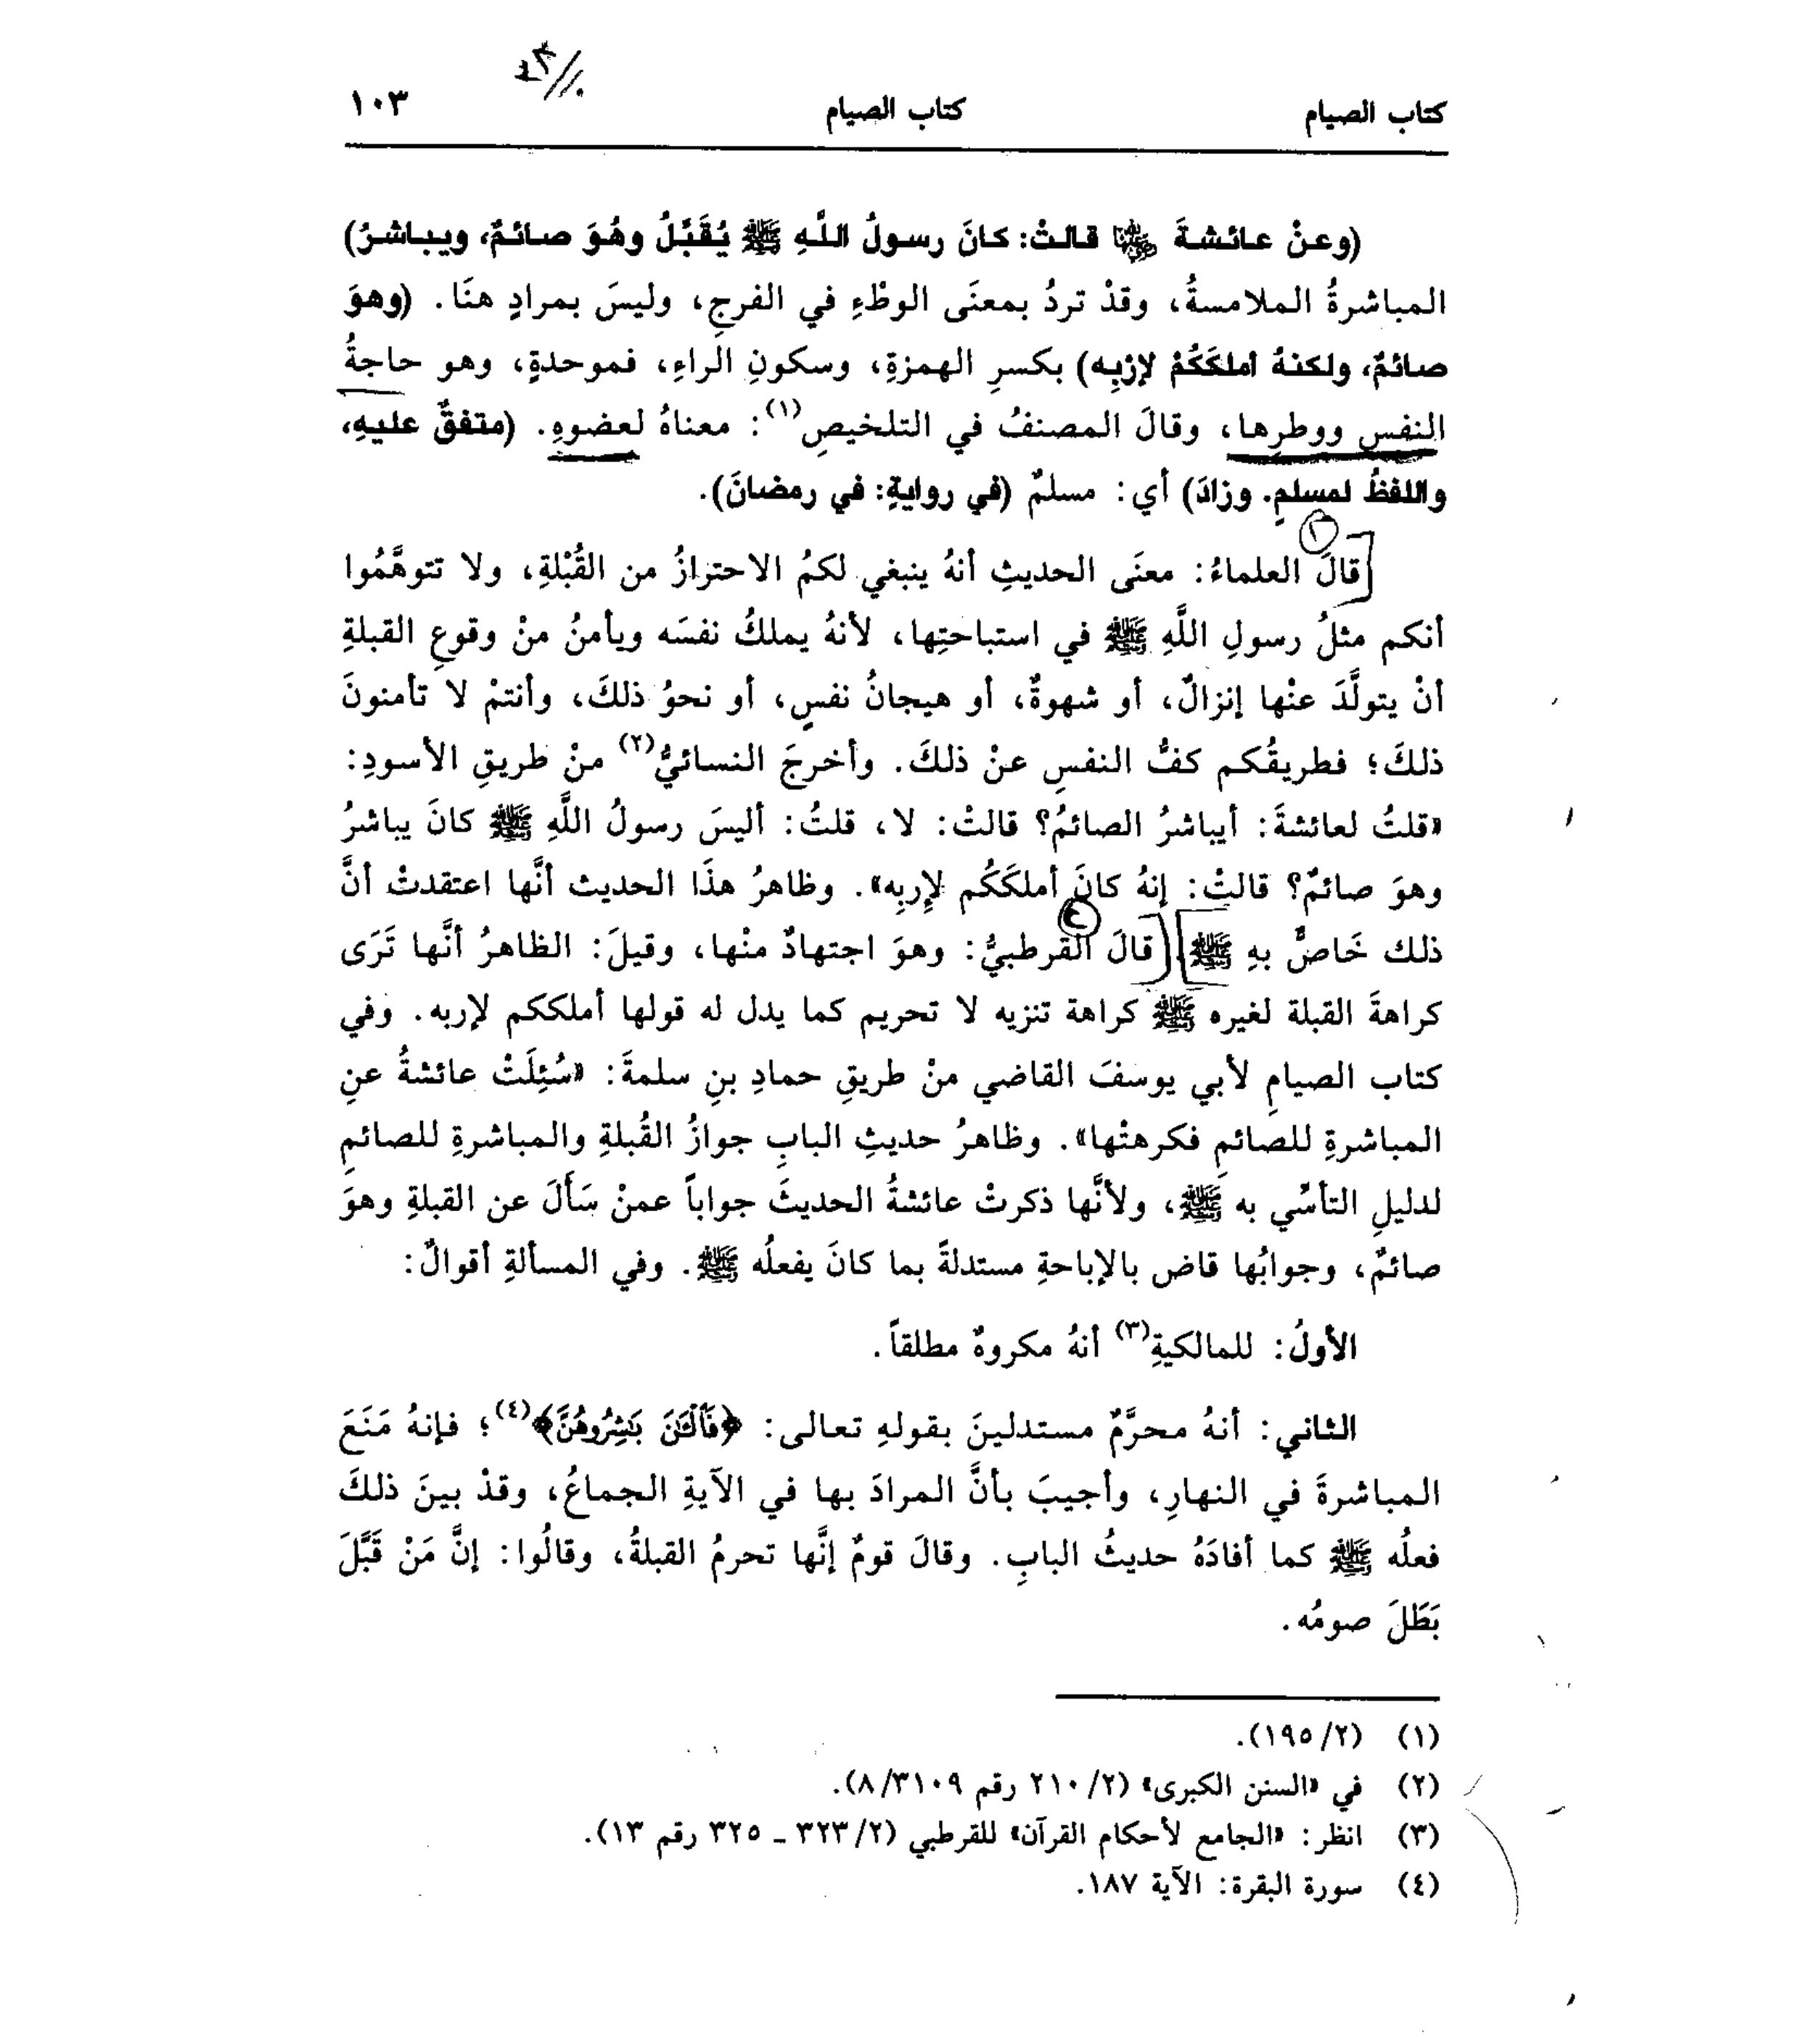 كتاب الصيام كتاب الصيام ١٠٣
(وعنْ عائشةَ رضي الله عنها قالتْ: كانَ رسولُ اللَّهِ ﷺ يُقَبِّلُ وهُوَ صائمٌ، ويباشرُ)
المباشرةُ الملامسةُ، وقدْ تردُ بمعنَى الوطْءِ في الفرجِ، وليسَ بمرادٍ هنَا. (وهوَ
صائمٌ، ولكنهُ أملكَكُمْ لإرْبِه) بكسرِ الهمزةِ، وسكونِ الراءِ، فموحدةٍ، وهو حاجةُ
النفسِ ووطرِها، وقالَ المصنفُ في التلخيصِ(١): معناهُ لعضوهِ. (متفقٌ عليهِ،
واللفظُ لمسلمٍ. وزادَ) أي: مسلمٌ (في روايةٍ: في رمضانَ).
قالَ العلماءُ: معنَى الحديثِ أنهُ ينبغي لكمُ الاحترازُ من القُبْلةِ، ولا تتوهَّمُوا
أنكم مثلُ رسولِ اللَّهِ ﷺ في استباحتِها، لأنهُ يملكُ نفسَه ويأمنُ منْ وقوعِ القبلةِ
أنْ يتولَّدَ عنْها إنزالٌ، أو شهوةٌ، أو هيجانُ نفسٍ، أو نحوُ ذلكَ، وأنتمْ لا تأمنونَ
ذلكَ؛ فطريقُكم كفُّ النفسِ عنْ ذلكَ. وأخرجَ النسائيُّ(٢) منْ طريقِ الأسودِ:
«قلتُ لعائشةَ: أيباشرُ الصائمُ؟ قالتْ: لا، قلتُ: أليسَ رسولُ اللَّهِ ﷺ كانَ يباشرُ
وهوَ صائمٌ؟ قالتْ: إنهُ كانَ أملكَكُم لإِربِه». وظاهرُ هذَا الحديث أنَّها اعتقدتْ أنَّ
ذلك خَاصٌّ بهِ ﷺ قالَ القرطبيُّ: وهوَ اجتهادٌ منْها، وقيلَ: الظاهرُ أنَّها تَرَى
كراهةَ القبلة لغيره ﷺ كراهة تنزيه لا تحريم كما يدل له قولها أملككم لإربه. وفي
كتاب الصيامِ لأبي يوسفَ القاضي منْ طريقِ حمادِ بنِ سلمةَ: «سُئِلَتْ عائشةُ عنِ
المباشرةِ للصائمِ فكرهتْها». وظاهرُ حديثِ البابِ جوازُ القُبلةِ والمباشرةِ للصائمِ
لدليلِ التأسِّي به ﷺ، ولأنَّها ذكرتْ عائشةُ الحديثَ جواباً عمنْ سَأَلَ عن القبلةِ وهوَ
صائمٌ، وجوابُها قاض بالإباحةِ مستدلةً بما كانَ يفعلُه ﷺ. وفي المسألةِ أقوالٌ:
الأولُ: للمالكيةِ(٣) أنهُ مكروهٌ مطلقاً.
الثاني: أنهُ محرَّمٌ مستدلينَ بقولهِ تعالى: ﴿فَٱلْـَٰٔنَ بَـٰشِرُوهُنَّ﴾(٤)؛ فإنهُ مَنَعَ
المباشرةَ في النهارِ، وأجيبَ بأنَّ المرادَ بها في الآيةِ الجماعُ، وقدْ بينَ ذلكَ
فعلُه ﷺ كما أفادَهُ حديثُ البابِ. وقالَ قومٌ إنَّها تحرمُ القبلةُ، وقالُوا: إنَّ مَنْ قَبَّلَ
بَطَلَ صومُه.
(١) (٢/ ١٩٥).
(٢) في «السنن الكبرى» (٢/ ٢١٠ رقم ٨/٣١٠٩).
(٣) انظر: «الجامع لأحكام القرآن» للقرطبي (٢/ ٣٢٣ ـ ٣٢٥ رقم ١٣).
(٤) سورة البقرة: الآية ١٨٧.